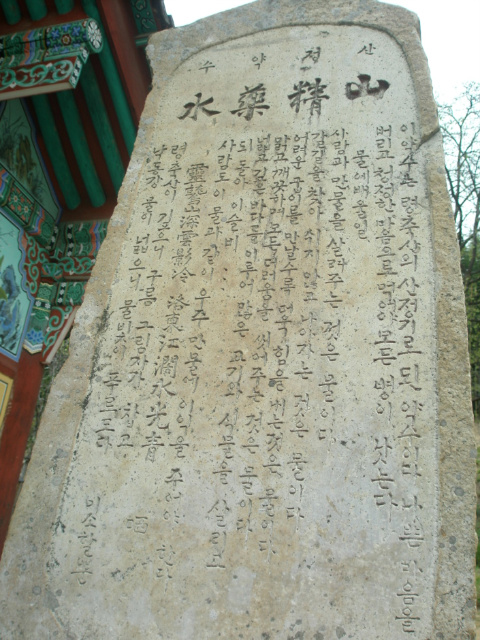 산정약수
山精藥水
이 약수는 령축산의 산정기로 된 약수이다 나쁜 마음을
버리고 청정한 마음으로 먹어야 모든 병이 낫는다
물에 배울일
사람과 만물을 살려주는 것은 물이다
갈길을 찾아 쉬지 않고 나아가는 것은 물이다
어려운 굽이를 만날수록 더욱 힘을 내는 것은 물이다
맑고 깨끗하며 모든 더러움을 씻어주는 것은 물이다
넓고 깊은 바다를 이루어 많은 고기와 식물을 살리고
되돌아 이슬비
사람도 이 물과 같이 우주만물에 이익을 주어야 한다
靈鷲山深雲影冷 洛東江濶水光青
령축산이 깊으니 구름 그림자가 차고
낙동강 물이 넓으니 물빛이 푸르도다
미소할 뿐